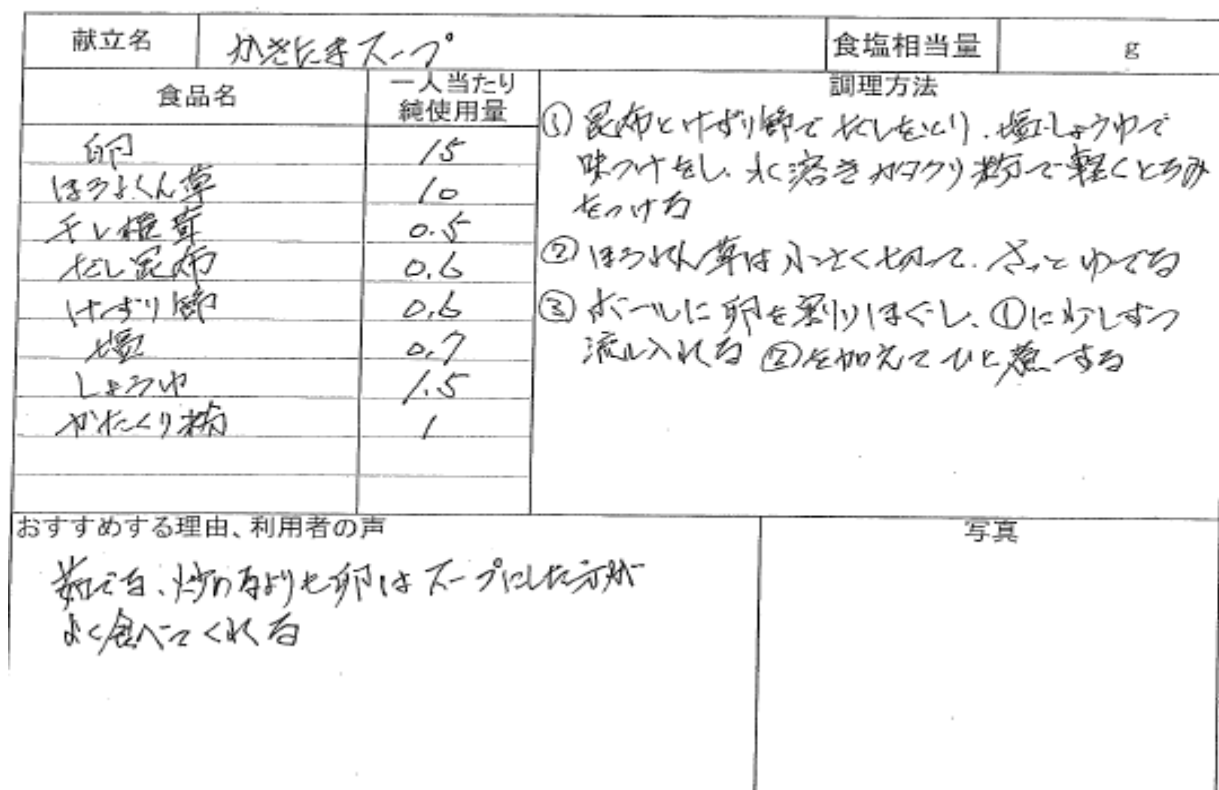 献立名 かきたまスープ 食塩相当量 g
食品名 一人当たり純使用量 調理方法
卵 15
ほうれん草 10
干し椎茸 0.5
だし昆布 0.6
けずり節 0.6
塩 0.7
しょうゆ 1.5
かたくり粉 1
① 昆布とけずり節でだしをとり、塩、しょうゆで
味つけをし、水溶きカタクリ粉で軽くとろみ
をつける
② ほうれん草は小さく切って、さっとゆでる
③ ボールに卵を割りほぐし、①に少しずつ
流し入れる ②を加えてひと煮する
おすすめする理由、利用者の声
茹でる、炒めるよりも卵はスープにした方が
よく食べてくれる
写真